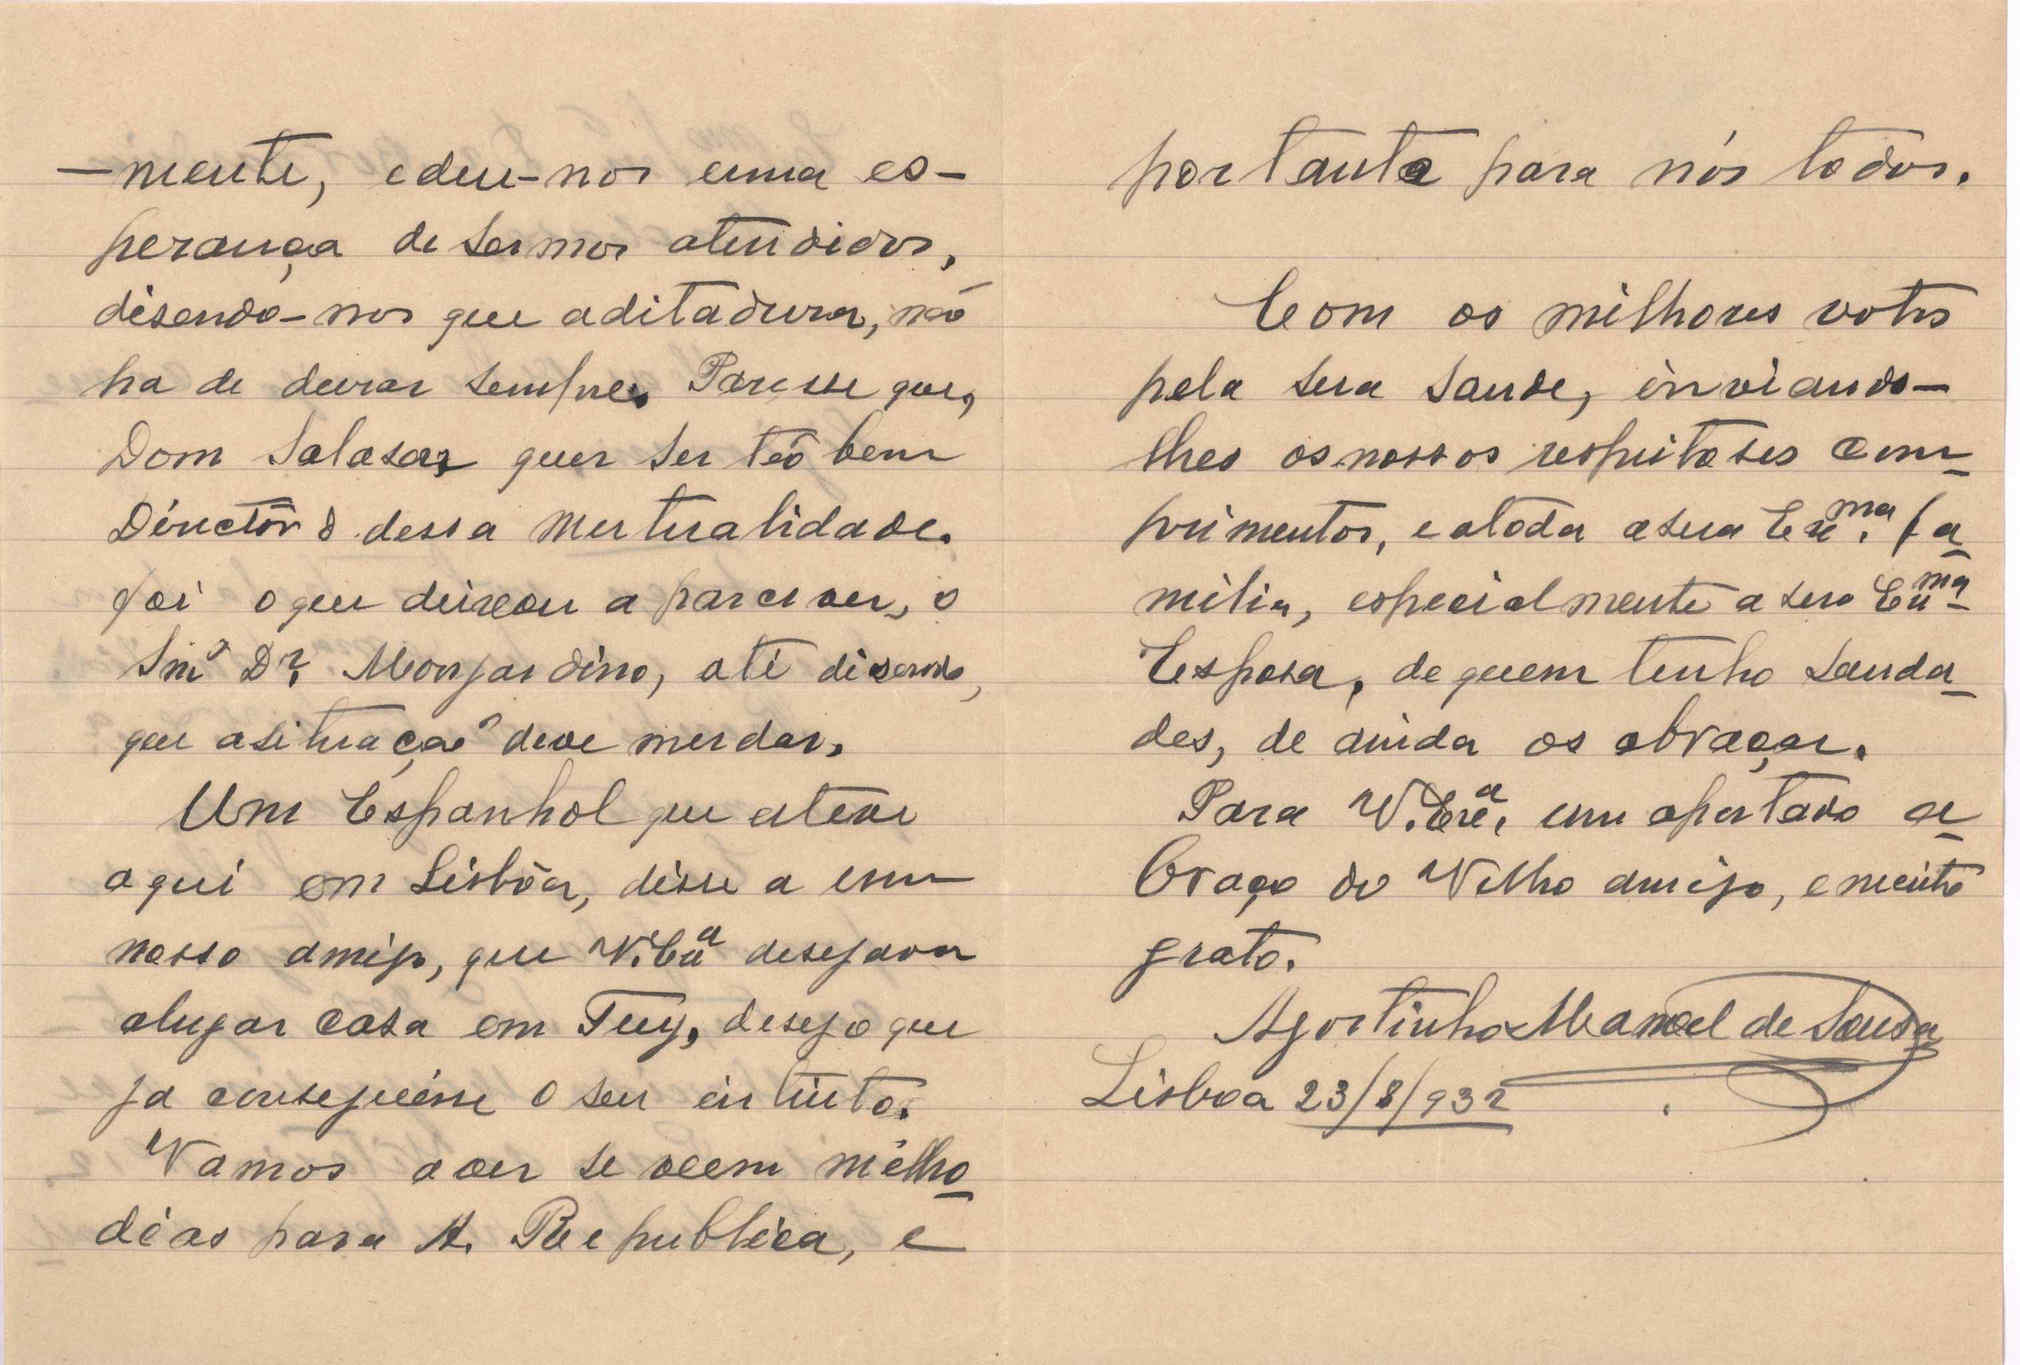 —mente, e deu-nos uma es-
perança de sermos atendidos,
disendo-nos que a ditadura, não
ha de durar sempre. Paresse que,
Dom Salasar, quer ser tão bem
Dirictôr d dessa mutualidade.
foi o que deixou a parcever, o
Snr Dr. Monjardino, até disendo,
que a situação deve mudar.
Um Espanhol que esteve
aqui em Lisbôa, disse a um
nosso amigo, que V. Exª desejava
alugar casa em Tuy, desejo que
ja conseguisse o seu intinto.
Vamos a ver se veem milho
dias para A. Republica, e
portanto para nós todos.
Com os milhores votos
pela sua saude, inviando-
lhes os nossos respeitosos com-
primentos, e a toda a sua Exma. fa-
milia, especialmente a sua Exma
Esposa, de quem tenho sauda-
des, de ainda os abraçar.
Para V. Exª. um apertado a-
braço do Velho amigo, e muito
grato.
Agostinho Manoel de Sousa
Lisboa 23/8/932